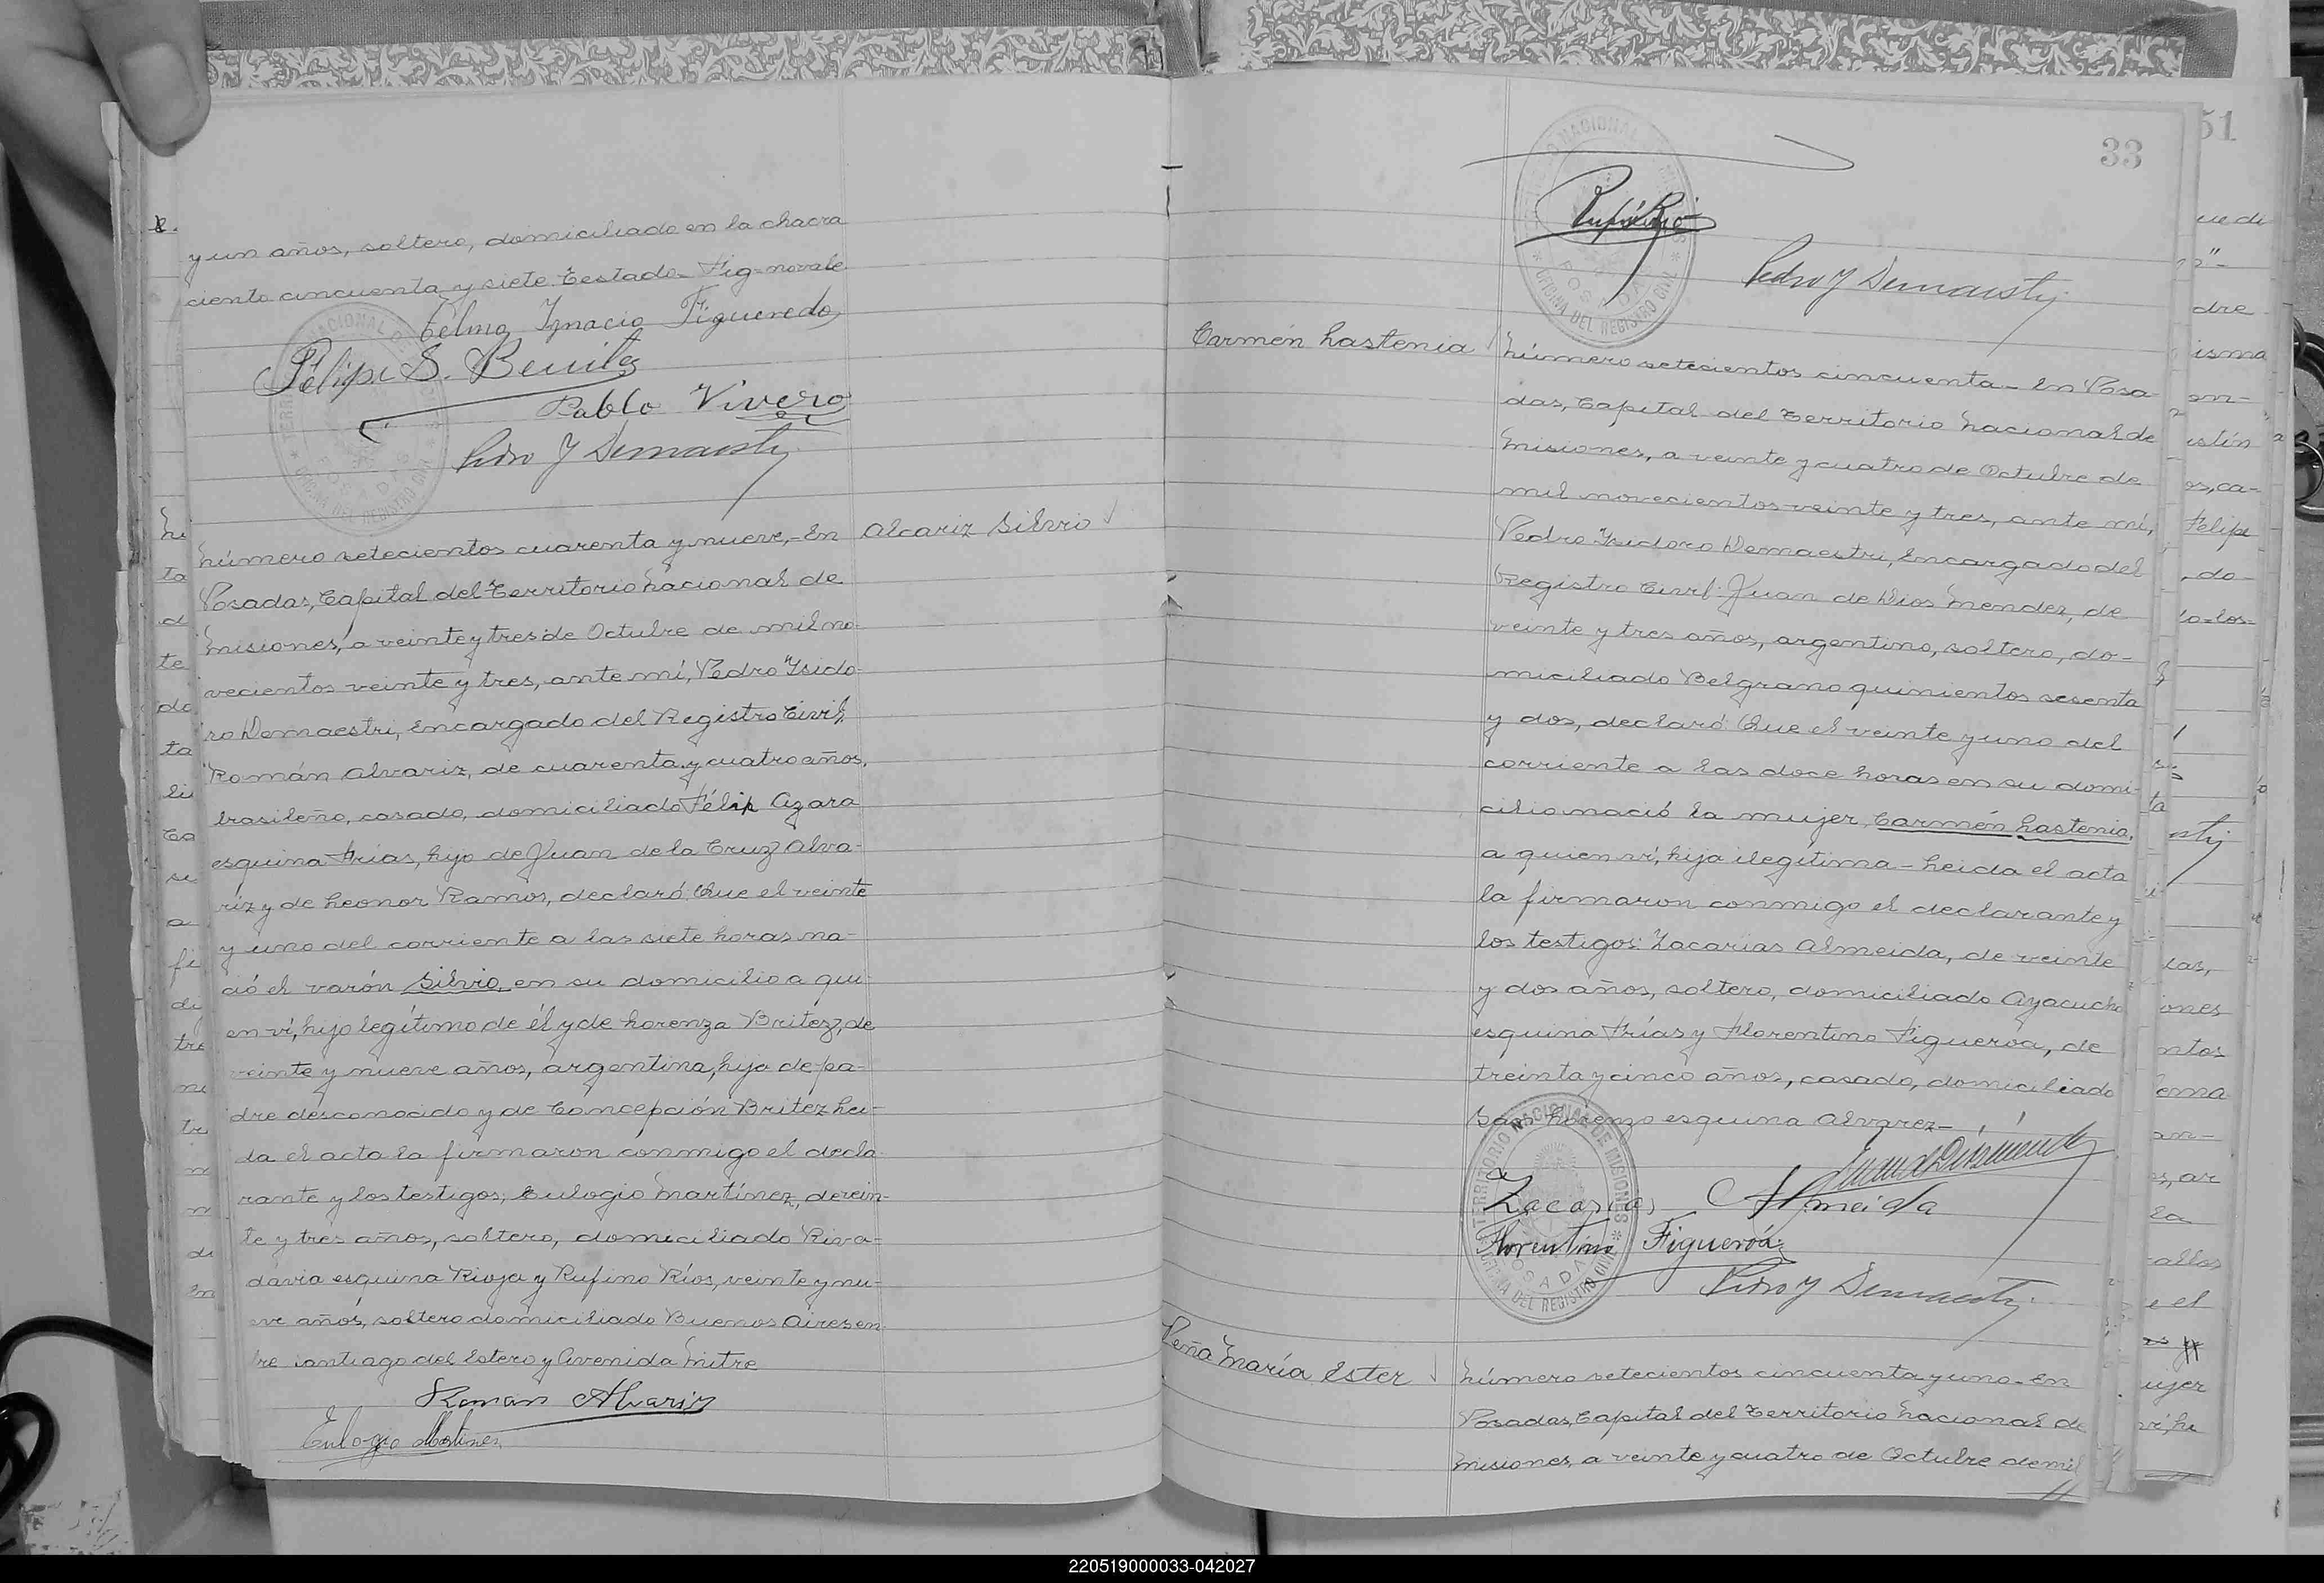 y un años, soltero, domiciliado en la chacra
ciento cincuenta y siete. Testado-Fig-no vale
Telmo Ignacio Figueredo
Felipe S. Benitez
Pablo Vivero
Pedro Y Demaestri
Número setecientos cuarenta y nueve,-En
Alcariz Silvio
Posadas, Capital del Territorio Nacional de
Misiones, a veinte y tres de Octubre de mil no-
vecientos veinte y tres, ante mí, Pedro Ysido-
ro Demaestri, Encargado del Registro Civil,
Román Alvariz, de cuarenta y cuatro años,
brasileño, casado, domiciliado Félix Azara
esquina Frías, hijo de Juan de la Cruz Alva-
riz y de Leonor Ramos, declaró: Que el veinte
y uno del corriente a las siete horas na-
ció el varón Silvio, en su domicilio a qui-
en ví, hijo legítimo de él y de Lorenza Britez, de
veinte y nueve años, argentina, hija de pa-
dre desconocido y de Concepción Britez Lei-
da el acta la firmaron conmigo el decla-
rante y los testigos; Eulogio Martínez, de vein-
te y tres años, soltero, domiciliado Riva-
davia esquina Rioja y Rufino Ríos, veinte y nu-
eve años, soltero domiciliado Buenos Aires en-
tre Santiago del Estero y Avenida Mitre
Roman Alvariz
Eulogio Martinez
33
51
Rufino Rios
Pedro Y Demaestri
Carmén Lastenia
Número setecientos cincuenta-En Posa-
das, Capital del Territorio Nacional de
Misiones, a veinte y cuatro de Octubre de
mil novecientos veinte y tres, ante mí,
Pedro Ysidoro Demaestri, Encargado del
Registro Civil: Juan de Dios Mendez, de
veinte y tres años, argentino, soltero, do-
miciliado Belgrano quinientos sesenta
y dos, declaró: Que el veinte y uno del
corriente a las doce horas en su domi-
cilio nació la mujer Carmén Lastenia,
a quien ví, hija ilegítima-Leida el acta
la firmaron conmigo el declarante y
los testigos: Zacarías Almeida, de veinte
y dos años, soltero, domiciliado Ayacucho
esquina Frías y Florentino Figueroa, de
treinta y cinco años, casado, domiciliado
San Lorenzo esquina Alvarez-
Juan de Dios Mendez
Zacarias Almeida
Florentino Figueroa
Pedro Y Demaestri
TERRITORIO NACIONAL DE MISIONES
POSADAS
OFICINA DEL REGISTRO CIVIL
Peña María Ester
Número setecientos cincuenta y uno-En
Posadas, Capital del Territorio Nacional de
Misiones, a veinte y cuatro de Octubre de mil
220519000033-042027